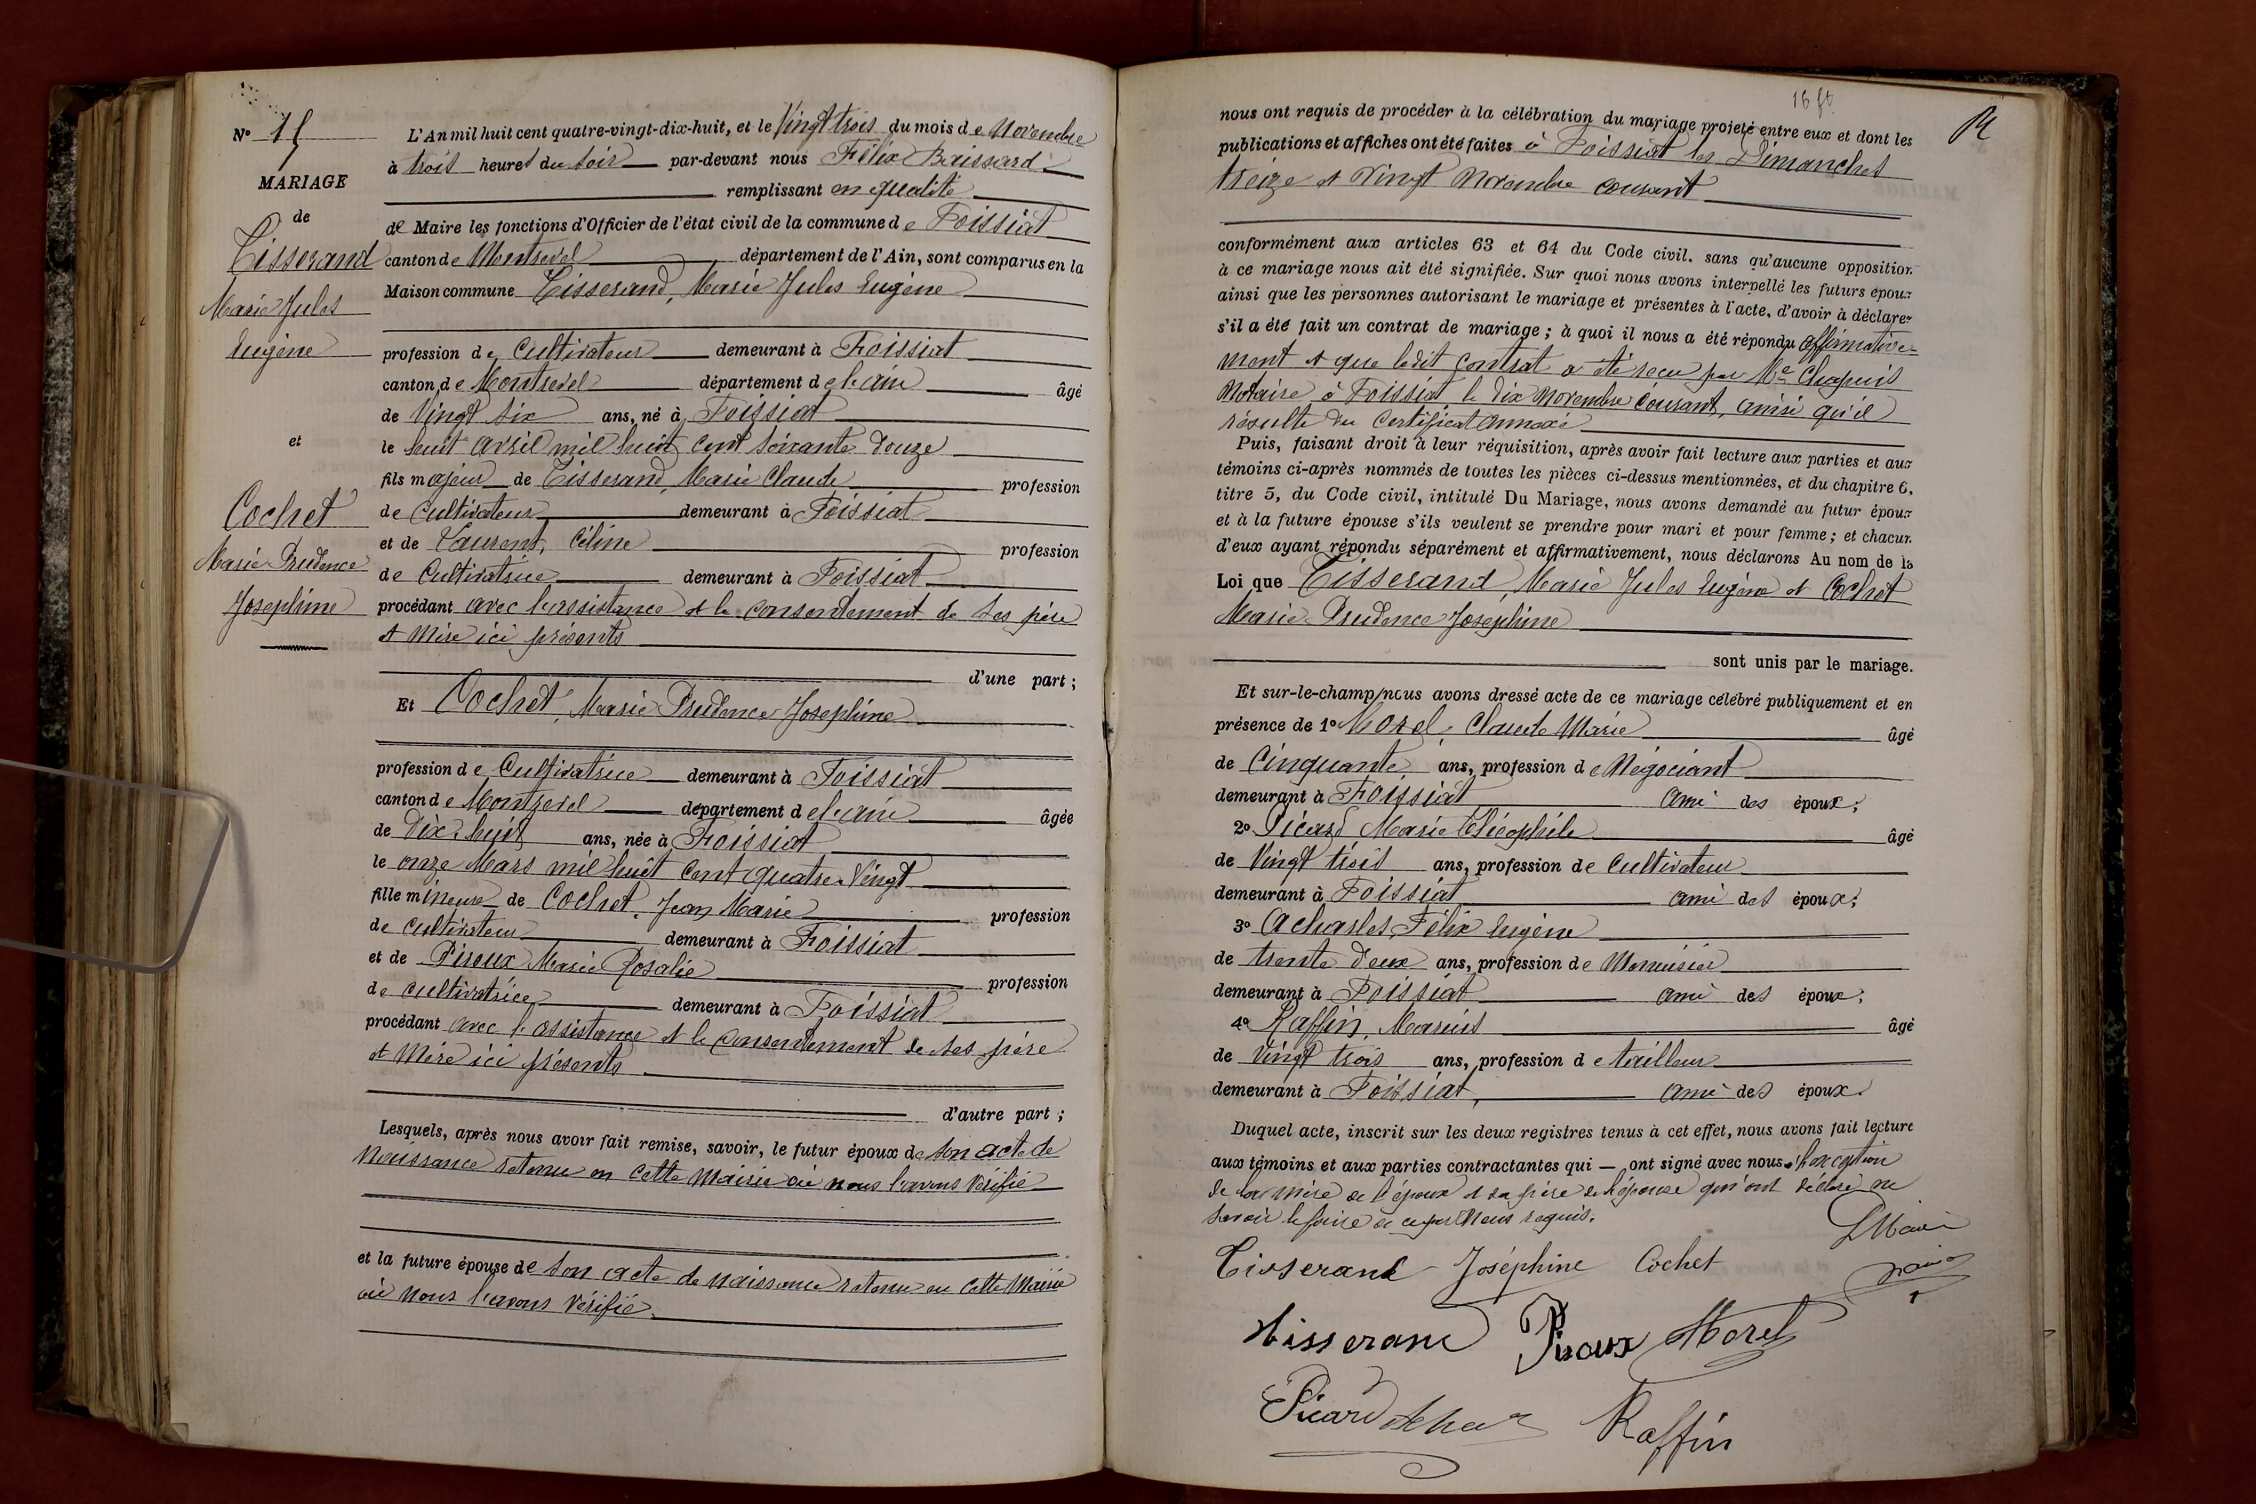 N° 15
MARIAGE
de
Tisserand
Marie Jules
Eugène
et
Cochet
Marie Prudence
Joséphine
L'An mil huit cent quatre-vingt-dix-huit, et le Vingt trois du mois de Novembre
à trois heures du soir par-devant nous Félix Baissard
remplissant en qualité
de Maire les fonctions d'Officier de l'état civil de la commune de Foissiat
canton de Montrevel département de l'Ain, sont comparus en la
Maison commune Tisserand, Marie Jules Eugène
profession de Cultivateur demeurant à Foissiat
canton de Montrevel département de l'ain âgé
de Vingt six ans, né à Foissiat
le huit avril mil huit cent soixante douze
fils majeur de Tisserand, Marie Claude profession
de Cultivateur demeurant à Foissiat
et de Laurent, Céline profession
de Cultivatrice demeurant à Foissiat
procédant avec l'assistance et le consentement de ses père
et Mère ici présents
d'une part ;
Et Cochet, Marie Prudence Joséphine
profession de Cultivatrice demeurant à Foissiat
canton de Montrevel département de l'ain âgée
de Dix-huit ans, née à Foissiat
le onze Mars mil huit cent quatre Vingt
fille mineure de Cochet, Jean Marie profession
de Cultivateur demeurant à Foissiat
et de Piroux Marie Rosalie profession
de cultivatrice demeurant à Foissiat
procédant avec l'assistance et le consentement de ses père
et Mère ici présents
d'autre part ;
Lesquels, après nous avoir fait remise, savoir, le futur époux de son acte de
Naissance retenu en cette Mairie où nous l'avons Vérifié
et la future épouse de son acte de naissance retenu en cette Mairie
où nous l'avons Vérifié
16 ft
R
nous ont requis de procéder à la célébration du mariage projeté entre eux et dont les
publications et affiches ont été faites à Foissiat les Dimanches
treize et Vingt Novembre courant
conformément aux articles 63 et 64 du Code civil. sans qu'aucune opposition
à ce mariage nous ait été signifiée. Sur quoi nous avons interpellé les futurs époux
ainsi que les personnes autorisant le mariage et présentes à l'acte, d'avoir à déclarer
s'il a été fait un contrat de mariage ; à quoi il nous a été répondu affirmative-
ment et que ledit Contrat a été reçu par Me Chapuis
Notaire à Foissiat le Dix Novembre courant, ainsi qu'il
résulte du Certificat annexé
Puis, faisant droit à leur réquisition, après avoir fait lecture aux parties et aux
témoins ci-après nommés de toutes les pièces ci-dessus mentionnées, et du chapitre 6,
titre 5, du Code civil, intitulé Du Mariage, nous avons demandé au futur époux
et à la future épouse s'ils veulent se prendre pour mari et pour femme ; et chacun
d'eux ayant répondu séparément et affirmativement, nous déclarons Au nom de la
Loi que Tisserand, Marie Jules Eugène et Cochet
Marie Prudence Joséphine
sont unis par le mariage.
Et sur-le-champ nous avons dressé acte de ce mariage célébré publiquement et en
présence de 1° Morel, Claude Marie âgé
de Cinquante ans, profession de Négociant
demeurant à Foissiat ami des époux ;
2° Picard Marie Cléophile âgé
de Vingt trois ans, profession de Cultivateur
demeurant à Foissiat ami des époux ;
3° Acharles, Félix Eugène
de trente Deux ans, profession de Menuisier
demeurant à Foissiat ami des époux ;
4° Raffin, Marius âgé
de Vingt trois ans, profession de tailleur
demeurant à Foissiat, ami des époux.
Duquel acte, inscrit sur les deux registres tenus à cet effet, nous avons fait lecture
aux témoins et aux parties contractantes qui — ont signé avec nous à l'exception
de la mère de l'époux et du père de l'épouse qui ont déclaré ne
savoir le faire de ce par Nous requis.
Le Maire
Tisserand Joséphine Cochet
Tisserand Piroux Morel
Picard Raffin